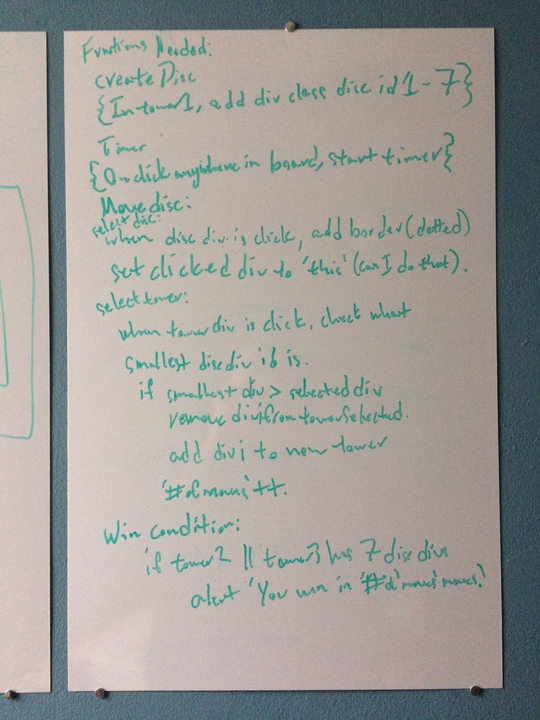 Functions Needed:
create Disc
{In tower1, add div class disc id 1-7}
Timer
{On click anywhere in board, start timer}
Move disc:
select disc:
when disc div is click, add border (dotted)
set clicked div to 'this' (can I do that).
select tower:
when tower div is click, check what
smallest disc div id is.
if smallest div > selected div
remove div from tower selected.
add div to new tower
'# of moves' ++.
Win condition:
if tower2 || tower3 has 7 disc divs
alert 'You win in '# of moves' moves.'